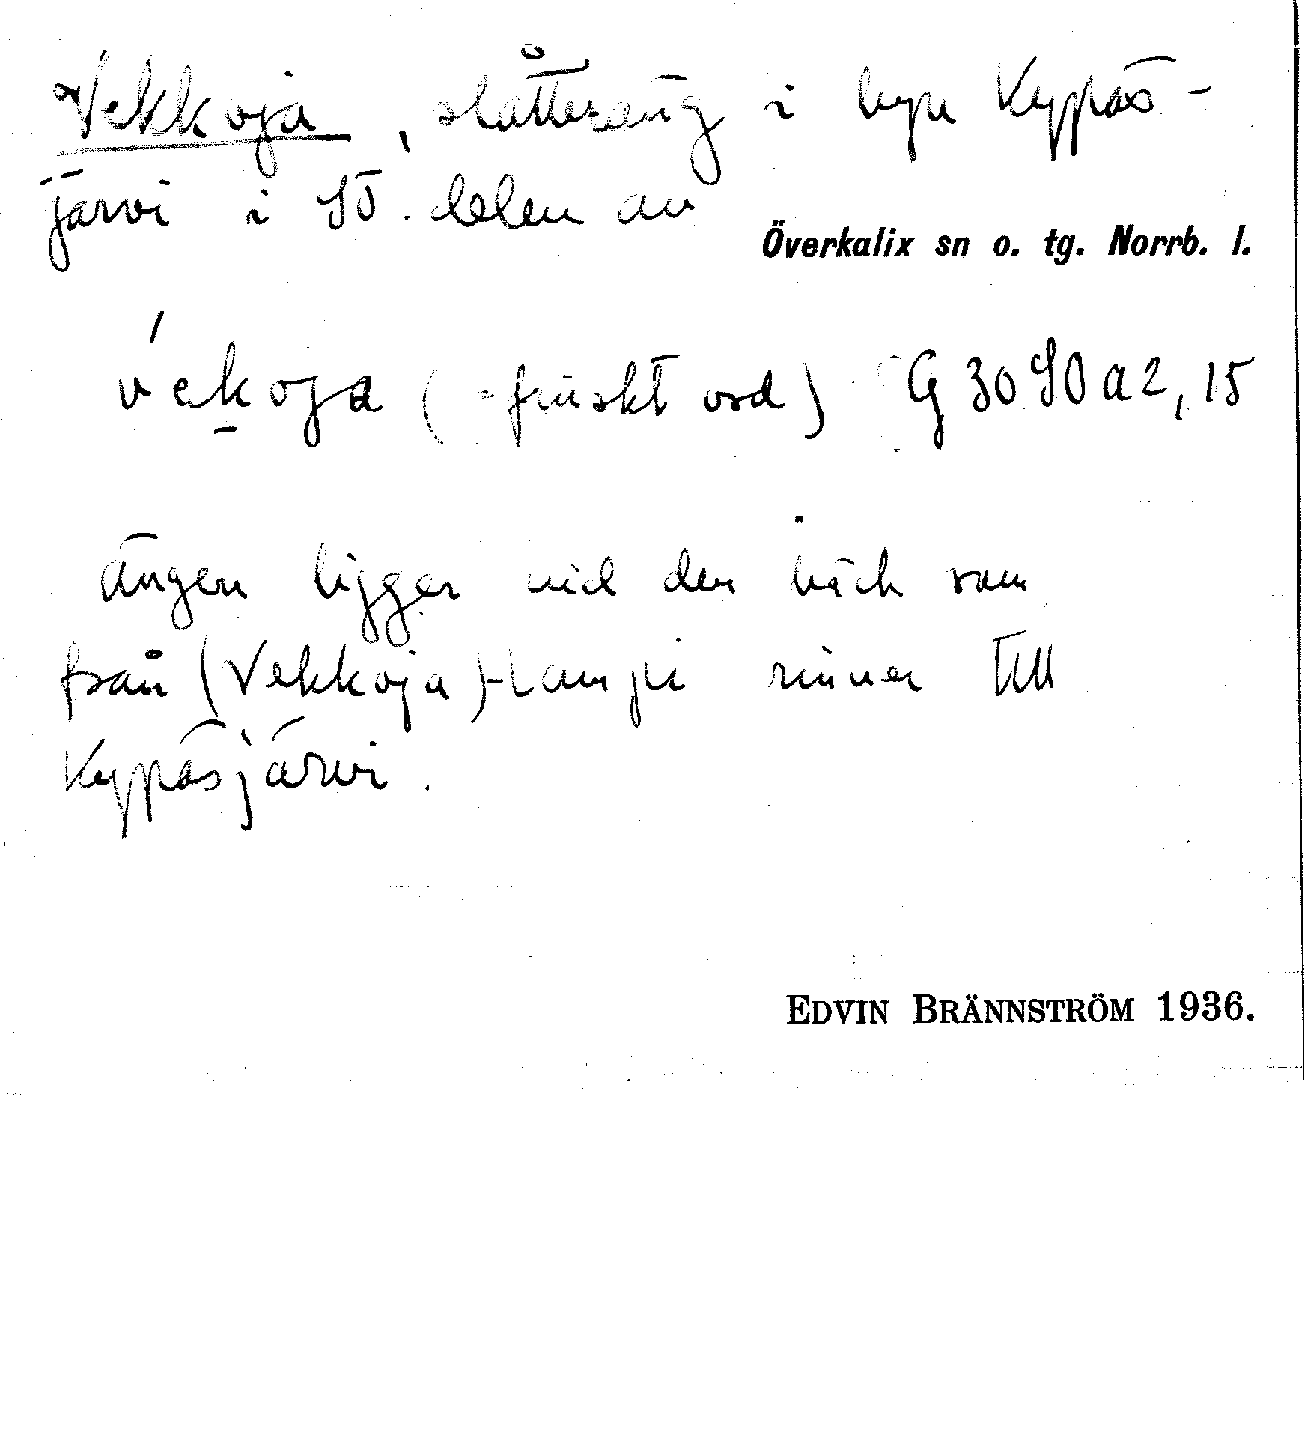 Vekkoja, slåtteräng i byn Kypäs-
järvi i SÖ. delen av
Överkalix sn o. tg. Norrb. l.
v́ek̠oja (-finskt ord) G 3090 a2, 15
ängen ligger vid den bäck som
från (Vekkoja)-lampi rinner till
Kypäsjärvi.
EDVIN BRÄNNSTRÖM 1936.